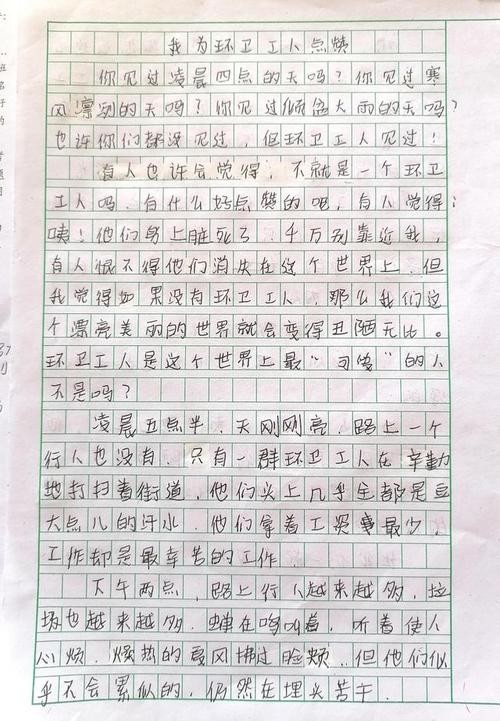 我为环卫工人点赞
你见过凌晨四点的天吗？你见过寒
风凛冽的天吗？你见过倾盆大雨的天吗？
也许你们都没见过，但环卫工人见过！
有人也许会觉得，不就是一个环卫
工人吗，有什么好点赞的吧，有人觉得：
咦！他们身上脏死了，千万别靠近我，
有人恨不得他们消失在这个世界上，但
我觉得如果没有环卫工人，那么我们这
个漂亮美丽的世界就会变得丑陋无比。
环卫工人是这个世界上最“可爱”的人
不是吗？
凌晨五点半，天刚刚亮，路上一个
行人也没有，只有一群环卫工人在辛勤
地打扫着街道，他们头上几乎全都是豆
大点儿的汗水，他们拿着工资最少，
工作却是最辛苦的工作
下午两点，路上行人越来越多，垃
圾也越来越多，蝉在鸣叫着，听着使人
心烦，燥热的夏风拂过脸颊，但他们似
乎不会累似的，仍然在埋头苦干．